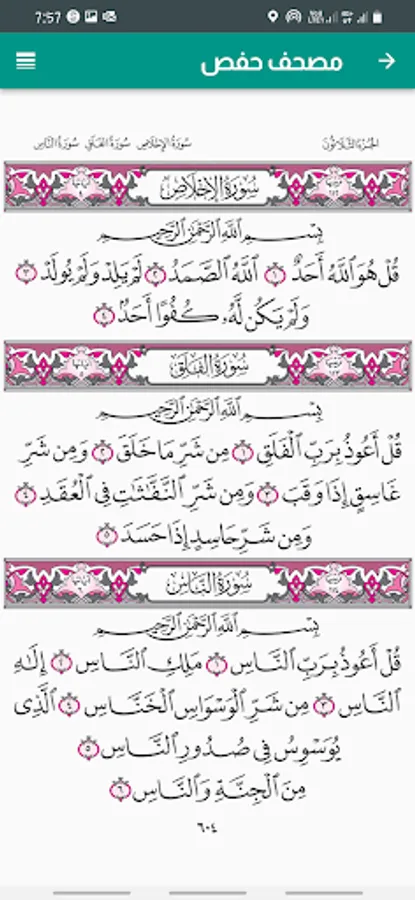 7:57
مصحف حفص
الجزء الثلاثون سورة الإخلاص سورة الفلق سورة الناس
سُورَةُ الإِخْلَاصِ
بِسْمِ ٱللَّهِ ٱلرَّحْمَٰنِ ٱلرَّحِيمِ
قُلْ هُوَ ٱللَّهُ أَحَدٌ ١ ٱللَّهُ ٱلصَّمَدُ ٢ لَمْ يَلِدْ وَلَمْ يُولَدْ ٣
وَلَمْ يَكُن لَّهُۥ كُفُوًا أَحَدٌۢ ٤
سُورَةُ الفَلَقِ
بِسْمِ ٱللَّهِ ٱلرَّحْمَٰنِ ٱلرَّحِيمِ
قُلْ أَعُوذُ بِرَبِّ ٱلْفَلَقِ ١ مِن شَرِّ مَا خَلَقَ ٢ وَمِن شَرِّ
غَاسِقٍ إِذَا وَقَبَ ٣ وَمِن شَرِّ ٱلنَّفَّٰثَٰتِ فِى ٱلْعُقَدِ ٤
وَمِن شَرِّ حَاسِدٍ إِذَا حَسَدَ ٥
سُورَةُ النَّاسِ
بِسْمِ ٱللَّهِ ٱلرَّحْمَٰنِ ٱلرَّحِيمِ
قُلْ أَعُوذُ بِرَبِّ ٱلنَّاسِ ١ مَلِكِ ٱلنَّاسِ ٢ إِلَٰهِ
ٱلنَّاسِ ٣ مِن شَرِّ ٱلْوَسْوَاسِ ٱلْخَنَّاسِ ٤ ٱلَّذِى
يُوَسْوِسُ فِى صُدُورِ ٱلنَّاسِ ٥
مِنَ ٱلْجِنَّةِ وَٱلنَّاسِ ٦
٦٠٤